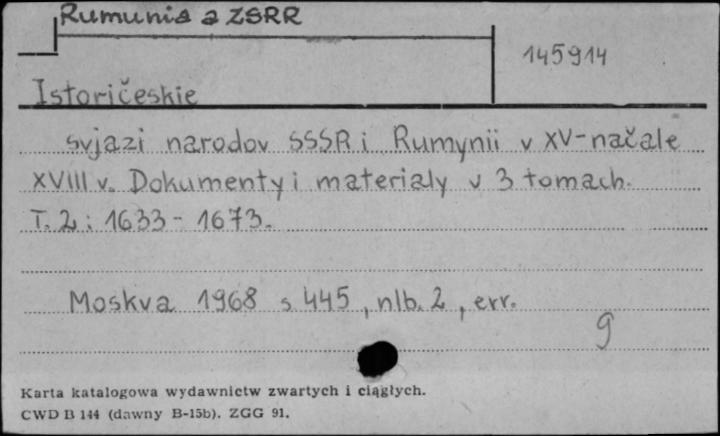 Rumunia a ZSRR
145914
Istoričeskie
svjazi narodov SSSR i Rumynii v XV-načale
XVIII v. Dokumenty i materialy v 3 tomach.
T. 2: 1633-1673.
Moskva 1968 s 445, nlb. 2, err.
g
Karta katalogowa wydawnictw zwartych i ciągłych.
CWD B 144 (dawny B-15b). ZGG 91.